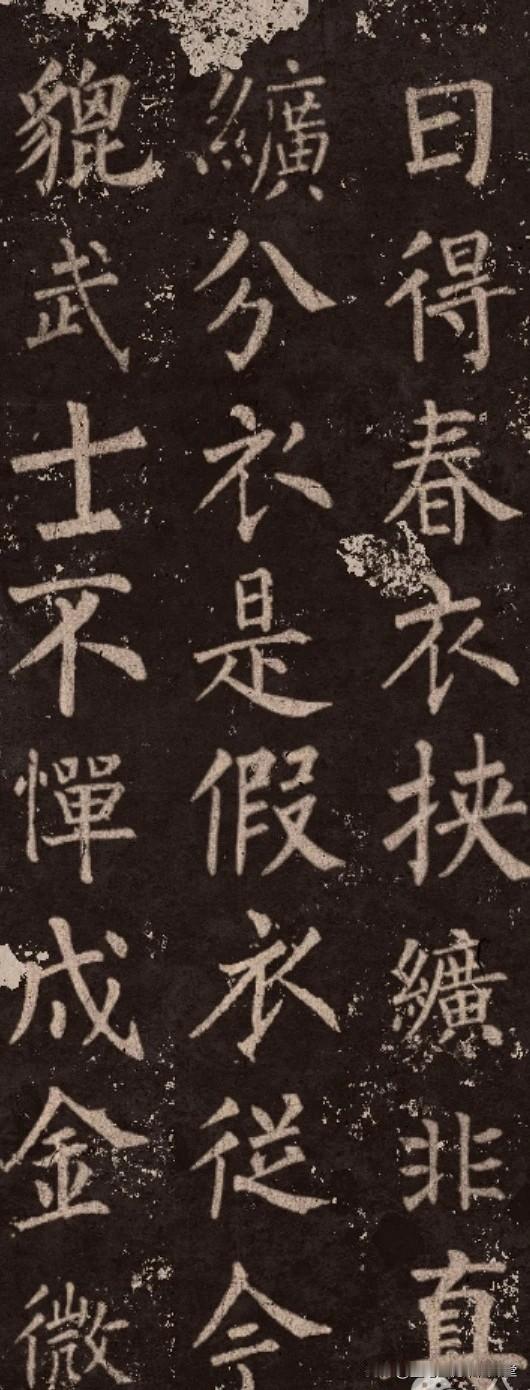 曰得春衣挾纊非真
纊分衣是假衣從今
貔武士不憚戍金微